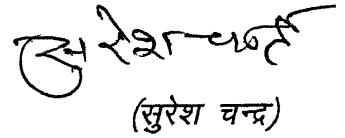 सुरेश चन्द्र
(सुरेश चन्द्र)